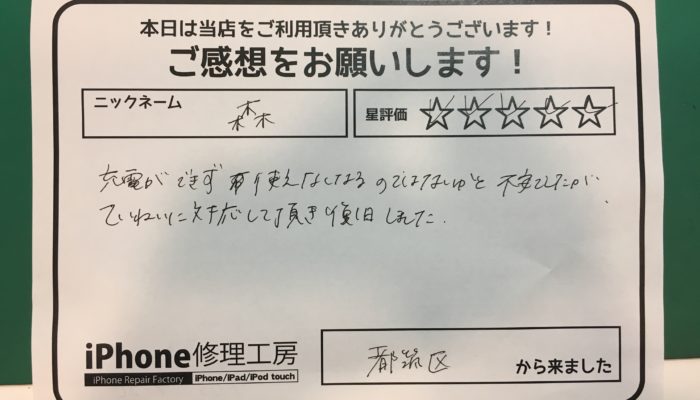 本日は当店をご利用頂きありがとうございます！
ご感想をお願いします！
ニックネーム 森 星評価 ☆☆☆☆☆
充電ができず 使えなくなるのではないかと 不安でしたが、
ていねいに対応して頂き復旧しました．
iPhone修理工房
iPhone Repair Factory iPhone/iPad/iPod touch
都筑区 から来ました